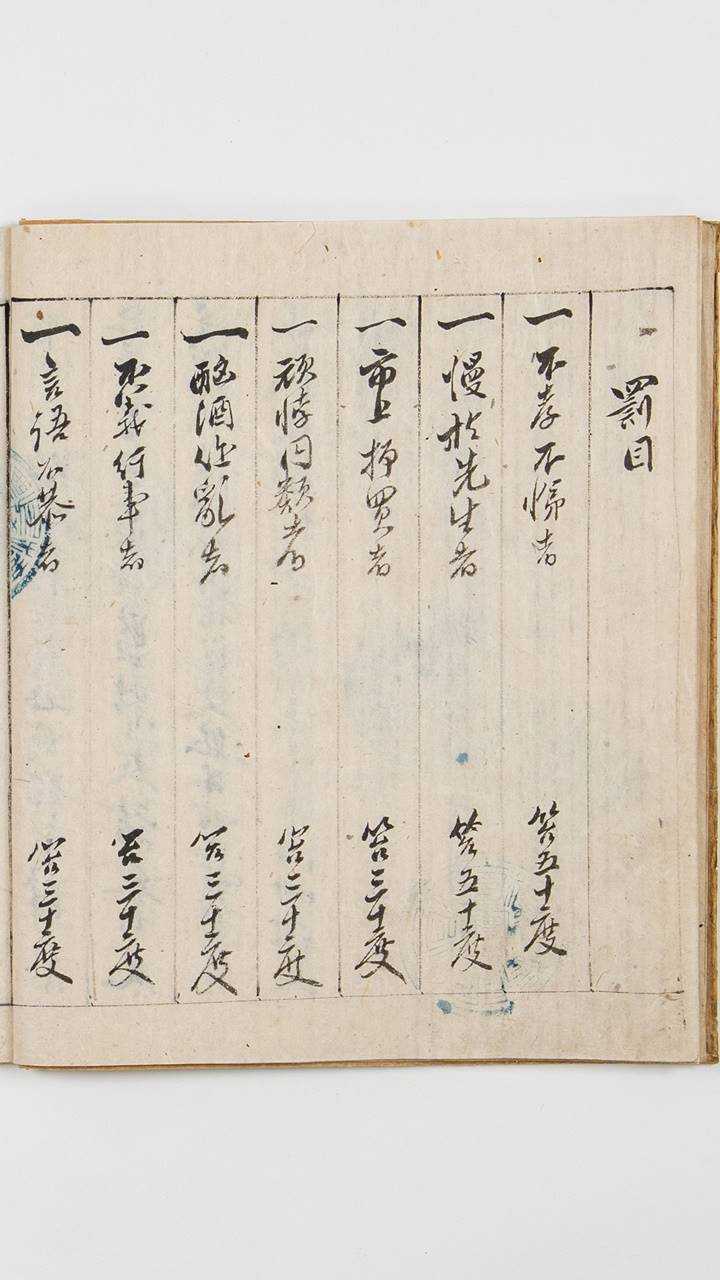 罰目
一 不孝不悌者 笞五十度
一 慢於先生者 笞五十度
一 市上抑買者 笞三十度
一 頑悖同類者 笞二十度
一 酗酒作亂者 笞三十度
一 不義行事者 笞三十度
一 言語不恭者 笞三十度